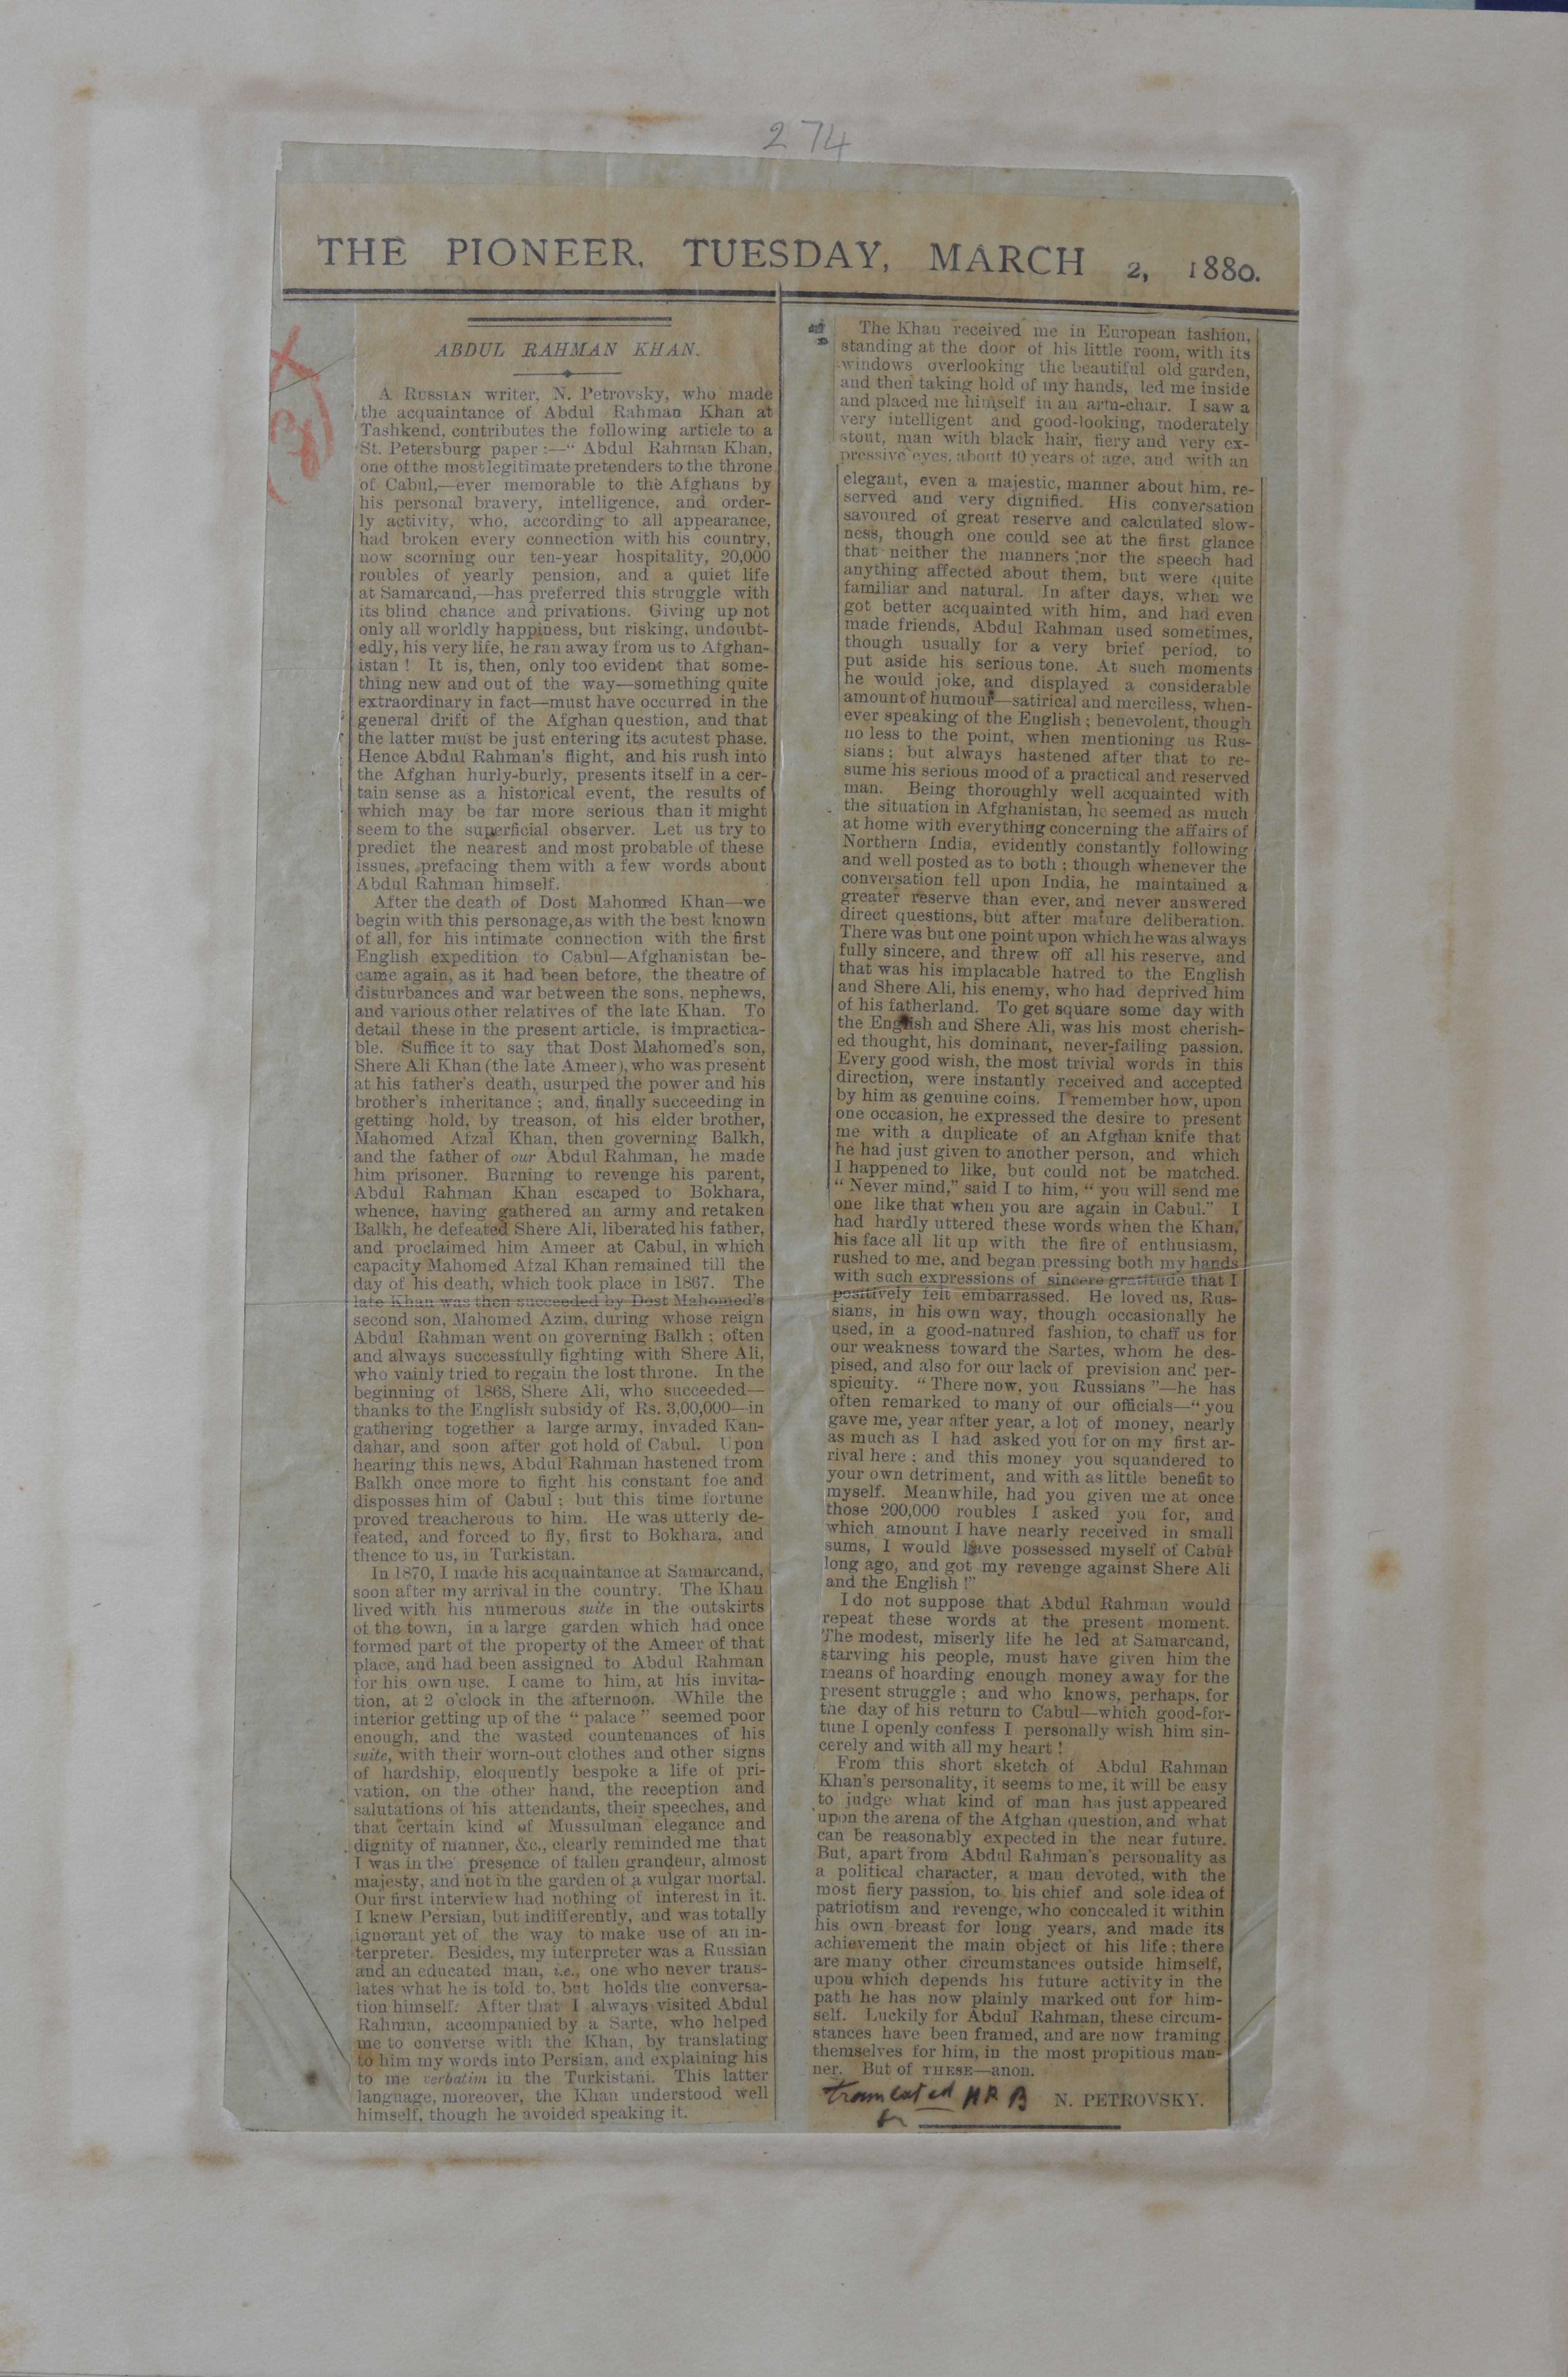 274
THE PIONEER, TUESDAY, MARCH 2, 1880.
ABDUL RAHMAN KHAN.
A RUSSIAN writer, N. Petrovsky, who made
the acquaintance of Abdul Rahman Khan at
Tashkend, contributes the following article to a
St. Petersburg paper :—“ Abdul Rahman Khan,
one of the most legitimate pretenders to the throne
of Cabul,—ever memorable to the Afghans by
his personal bravery, intelligence, and order-
ly activity, who, according to all appearance,
had broken every connection with his country,
now scorning our ten-year hospitality, 20,000
roubles of yearly pension, and a quiet life
at Samarcand,—has preferred this struggle with
its blind chance and privations. Giving up not
only all worldly happiness, but risking, undoubt-
edly, his very life, he ran away from us to Afghan-
istan ! It is, then, only too evident that some-
thing new and out of the way—something quite
extraordinary in fact—must have occurred in the
general drift of the Afghan question, and that
the latter must be just entering its acutest phase.
Hence Abdul Rahman's flight, and his rush into
the Afghan hurly-burly, presents itself in a cer-
tain sense as a historical event, the results of
which may be far more serious than it might
seem to the superficial observer. Let us try to
predict the nearest and most probable of these
issues, prefacing them with a few words about
Abdul Rahman himself.
After the death of Dost Mahomed Khan—we
begin with this personage, as with the best known
of all, for his intimate connection with the first
English expedition to Cabul—Afghanistan be-
came again, as it had been before, the theatre of
disturbances and war between the sons, nephews,
and various other relatives of the late Khan. To
detail these in the present article, is impractica-
ble. Suffice it to say that Dost Mahomed's son,
Shere Ali Khan (the late Ameer), who was present
at his father's death, usurped the power and his
brother's inheritance ; and, finally succeeding in
getting hold, by treason, of his elder brother,
Mahomed Afzal Khan, then governing Balkh,
and the father of our Abdul Rahman, he made
him prisoner. Burning to revenge his parent,
Abdul Rahman Khan escaped to Bokhara,
whence, having gathered an army and retaken
Balkh, he defeated Shere Ali, liberated his father,
and proclaimed him Ameer at Cabul, in which
capacity Mahomed Afzal Khan remained till the
day of his death, which took place in 1867. The
late Khan was then succeeded by Dost Mahomed's
second son, Mahomed Azim, during whose reign
Abdul Rahman went on governing Balkh ; often
and always successfully fighting with Shere Ali,
who vainly tried to regain the lost throne. In the
beginning of 1868, Shere Ali, who succeeded—
thanks to the English subsidy of Rs. 3,00,000—in
gathering together a large army, invaded Kan-
dahar, and soon after got hold of Cabul. Upon
hearing this news, Abdul Rahman hastened from
Balkh once more to fight his constant foe and
disposses him of Cabul ; but this time fortune
proved treacherous to him. He was utterly de-
feated, and forced to fly, first to Bokhara, and
thence to us, in Turkistan.
In 1870, I made his acquaintance at Samarcand,
soon after my arrival in the country. The Khan
lived with his numerous suite in the outskirts
of the town, in a large garden which had once
formed part of the property of the Ameer of that
place, and had been assigned to Abdul Rahman
for his own use. I came to him, at his invita-
tion, at 2 o'clock in the afternoon. While the
interior getting up of the “ palace ” seemed poor
enough, and the wasted countenances of his
suite, with their worn-out clothes and other signs
of hardship, eloquently bespoke a life of pri-
vation, on the other hand, the reception and
salutations of his attendants, their speeches, and
that certain kind of Mussulman elegance and
dignity of manner, &c., clearly reminded me that
I was in the presence of fallen grandeur, almost
majesty, and not in the garden of a vulgar mortal.
Our first interview had nothing of interest in it.
I knew Persian, but indifferently, and was totally
ignorant yet of the way to make use of an in-
terpreter. Besides, my interpreter was a Russian
and an educated man, i.e., one who never trans-
lates what he is told to, but holds the conversa-
tion himself. After that I always visited Abdul
Rahman, accompanied by a Sarte, who helped
me to converse with the Khan, by translating
to him my words into Persian, and explaining his
to me verbatim in the Turkistani. This latter
language, moreover, the Khan understood well
himself, though he avoided speaking it.
The Khan received me in European fashion,
standing at the door of his little room, with its
windows overlooking the beautiful old garden,
and then taking hold of my hands, led me inside
and placed me himself in an arm-chair. I saw a
very intelligent and good-looking, moderately
stout, man with black hair, fiery and very ex-
pressive eyes, about 40 years of age, and with an
elegant, even a majestic, manner about him, re-
served and very dignified. His conversation
savoured of great reserve and calculated slow-
ness, though one could see at the first glance
that neither the manners nor the speech had
anything affected about them, but were quite
familiar and natural. In after days, when we
got better acquainted with him, and had even
made friends, Abdul Rahman used sometimes,
though usually for a very brief period, to
put aside his serious tone. At such moments
he would joke, and displayed a considerable
amount of humour—satirical and merciless, when-
ever speaking of the English ; benevolent, though
no less to the point, when mentioning us Rus-
sians ; but always hastened after that to re-
sume his serious mood of a practical and reserved
man. Being thoroughly well acquainted with
the situation in Afghanistan, he seemed as much
at home with everything concerning the affairs of
Northern India, evidently constantly following
and well posted as to both ; though whenever the
conversation fell upon India, he maintained a
greater reserve than ever, and never answered
direct questions, but after mature deliberation.
There was but one point upon which he was always
fully sincere, and threw off all his reserve, and
that was his implacable hatred to the English
and Shere Ali, his enemy, who had deprived him
of his fatherland. To get square some day with
the English and Shere Ali, was his most cherish-
ed thought, his dominant, never-failing passion.
Every good wish, the most trivial words in this
direction, were instantly received and accepted
by him as genuine coins. I remember how, upon
one occasion, he expressed the desire to present
me with a duplicate of an Afghan knife that
he had just given to another person, and which
I happened to like, but could not be matched.
“ Never mind,” said I to him, “ you will send me
one like that when you are again in Cabul.” I
had hardly uttered these words when the Khan,
his face all lit up with the fire of enthusiasm,
rushed to me, and began pressing both my hands
with such expressions of sincere gratitude that I
positively felt embarrassed. He loved us, Rus-
sians, in his own way, though occasionally he
used, in a good-natured fashion, to chaff us for
our weakness toward the Sartes, whom he des-
pised, and also for our lack of prevision and per-
spicuity. “ There now, you Russians ”—he has
often remarked to many of our officials—“ you
gave me, year after year, a lot of money, nearly
as much as I had asked you for on my first ar-
rival here ; and this money you squandered to
your own detriment, and with as little benefit to
myself. Meanwhile, had you given me at once
those 200,000 roubles I asked you for, and
which amount I have nearly received in small
sums, I would have possessed myself of Cabul
long ago, and got my revenge against Shere Ali
and the English !”
I do not suppose that Abdul Rahman would
repeat these words at the present moment.
The modest, miserly life he led at Samarcand,
starving his people, must have given him the
means of hoarding enough money away for the
present struggle ; and who knows, perhaps, for
the day of his return to Cabul—which good-for-
tune I openly confess I personally wish him sin-
cerely and with all my heart !
From this short sketch of Abdul Rahman
Khan's personality, it seems to me, it will be easy
to judge what kind of man has just appeared
upon the arena of the Afghan question, and what
can be reasonably expected in the near future.
But, apart from Abdul Rahman's personality as
a political character, a man devoted, with the
most fiery passion, to his chief and sole idea of
patriotism and revenge, who concealed it within
his own breast for long years, and made its
achievement the main object of his life ; there
are many other circumstances outside himself,
upon which depends his future activity in the
path he has now plainly marked out for him-
self. Luckily for Abdul Rahman, these circum-
stances have been framed, and are now framing
themselves for him, in the most propitious man-
ner. But of THESE—anon.
N. PETROVSKY.